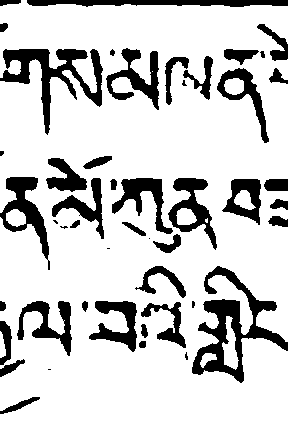 གས་མ་ལན་
ན་མོ་ཀུན་བཟ
ལ་བའི་གླིང